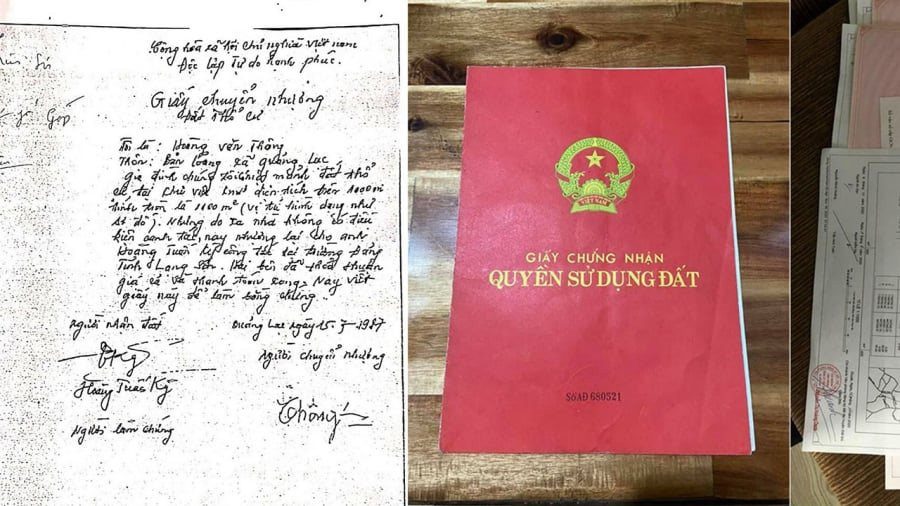 Cộng hòa xã hội chủ nghĩa Việt nam
Độc lập Tự do hạnh phúc.
Giấy chuyển nhượng
Đất thổ cư
Tôi là: Hoàng văn Thông
Thôn: Bản loỏng xã quảng Lạc
gia đình chúng tôi có mảnh đất thổ
cư tại diện tích trên
là 1100 m² (vị trí hình dạng như
sơ đồ). Nhưng do xa nhà không có điều
kiện canh tác, nay nhường lại cho anh
Hoàng Tuấn Kỳ công tác tại trường Đảng
Tỉnh Lạng Sơn. Hai bên đã thoả thuận
giá cả và thanh toán xong. Nay viết
giấy này để làm bằng chứng.
Người nhận đất
Quảng Lạc ngày 15-7-1987
Người chuyển nhượng
Hoàng Tuấn Kỳ
Thông
Người làm chứng
VIỆT NAM
GIẤY CHỨNG NHẬN
QUYỀN SỬ DỤNG ĐẤT
Số AĐ 680521